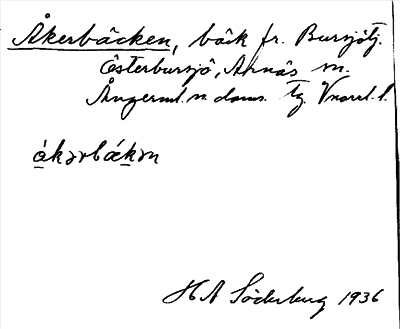 Åkerbäcken, bäck fr. Bursjötj.
Österbursjö, Arnäs sn.
Ångerml. n. doms. tg. Vnorrl. l.
ákərbǽkən
H A Söderberg 1936